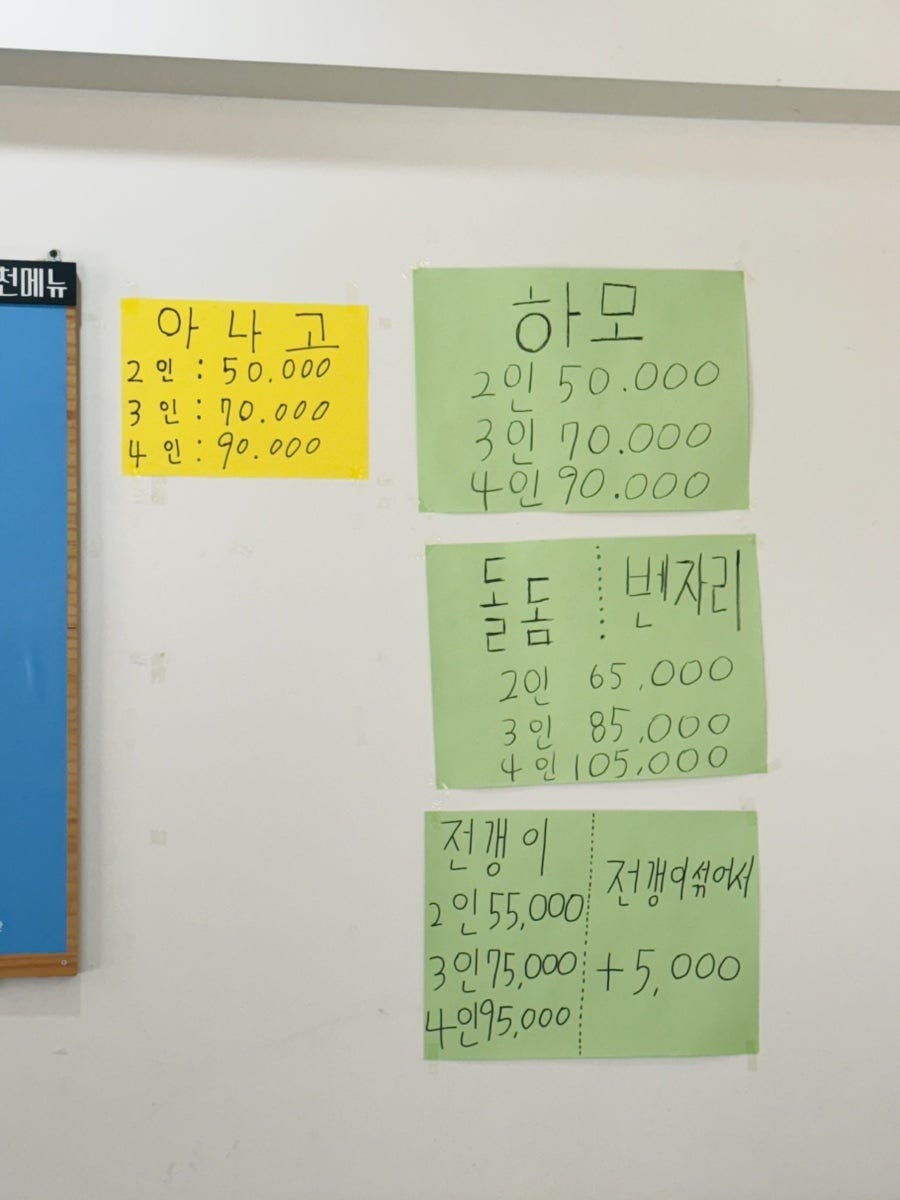 천메뉴
아나고
2인 : 50.000
3인 : 70.000
4인 : 90.000
하모
2인 50.000
3인 70.000
4인 90.000
돌돔 벤자리
2인 65,000
3인 85,000
4인 105,000
전갱이
2인 55,000
3인 75,000
4인 95,000
전갱이섞어서
+5,000